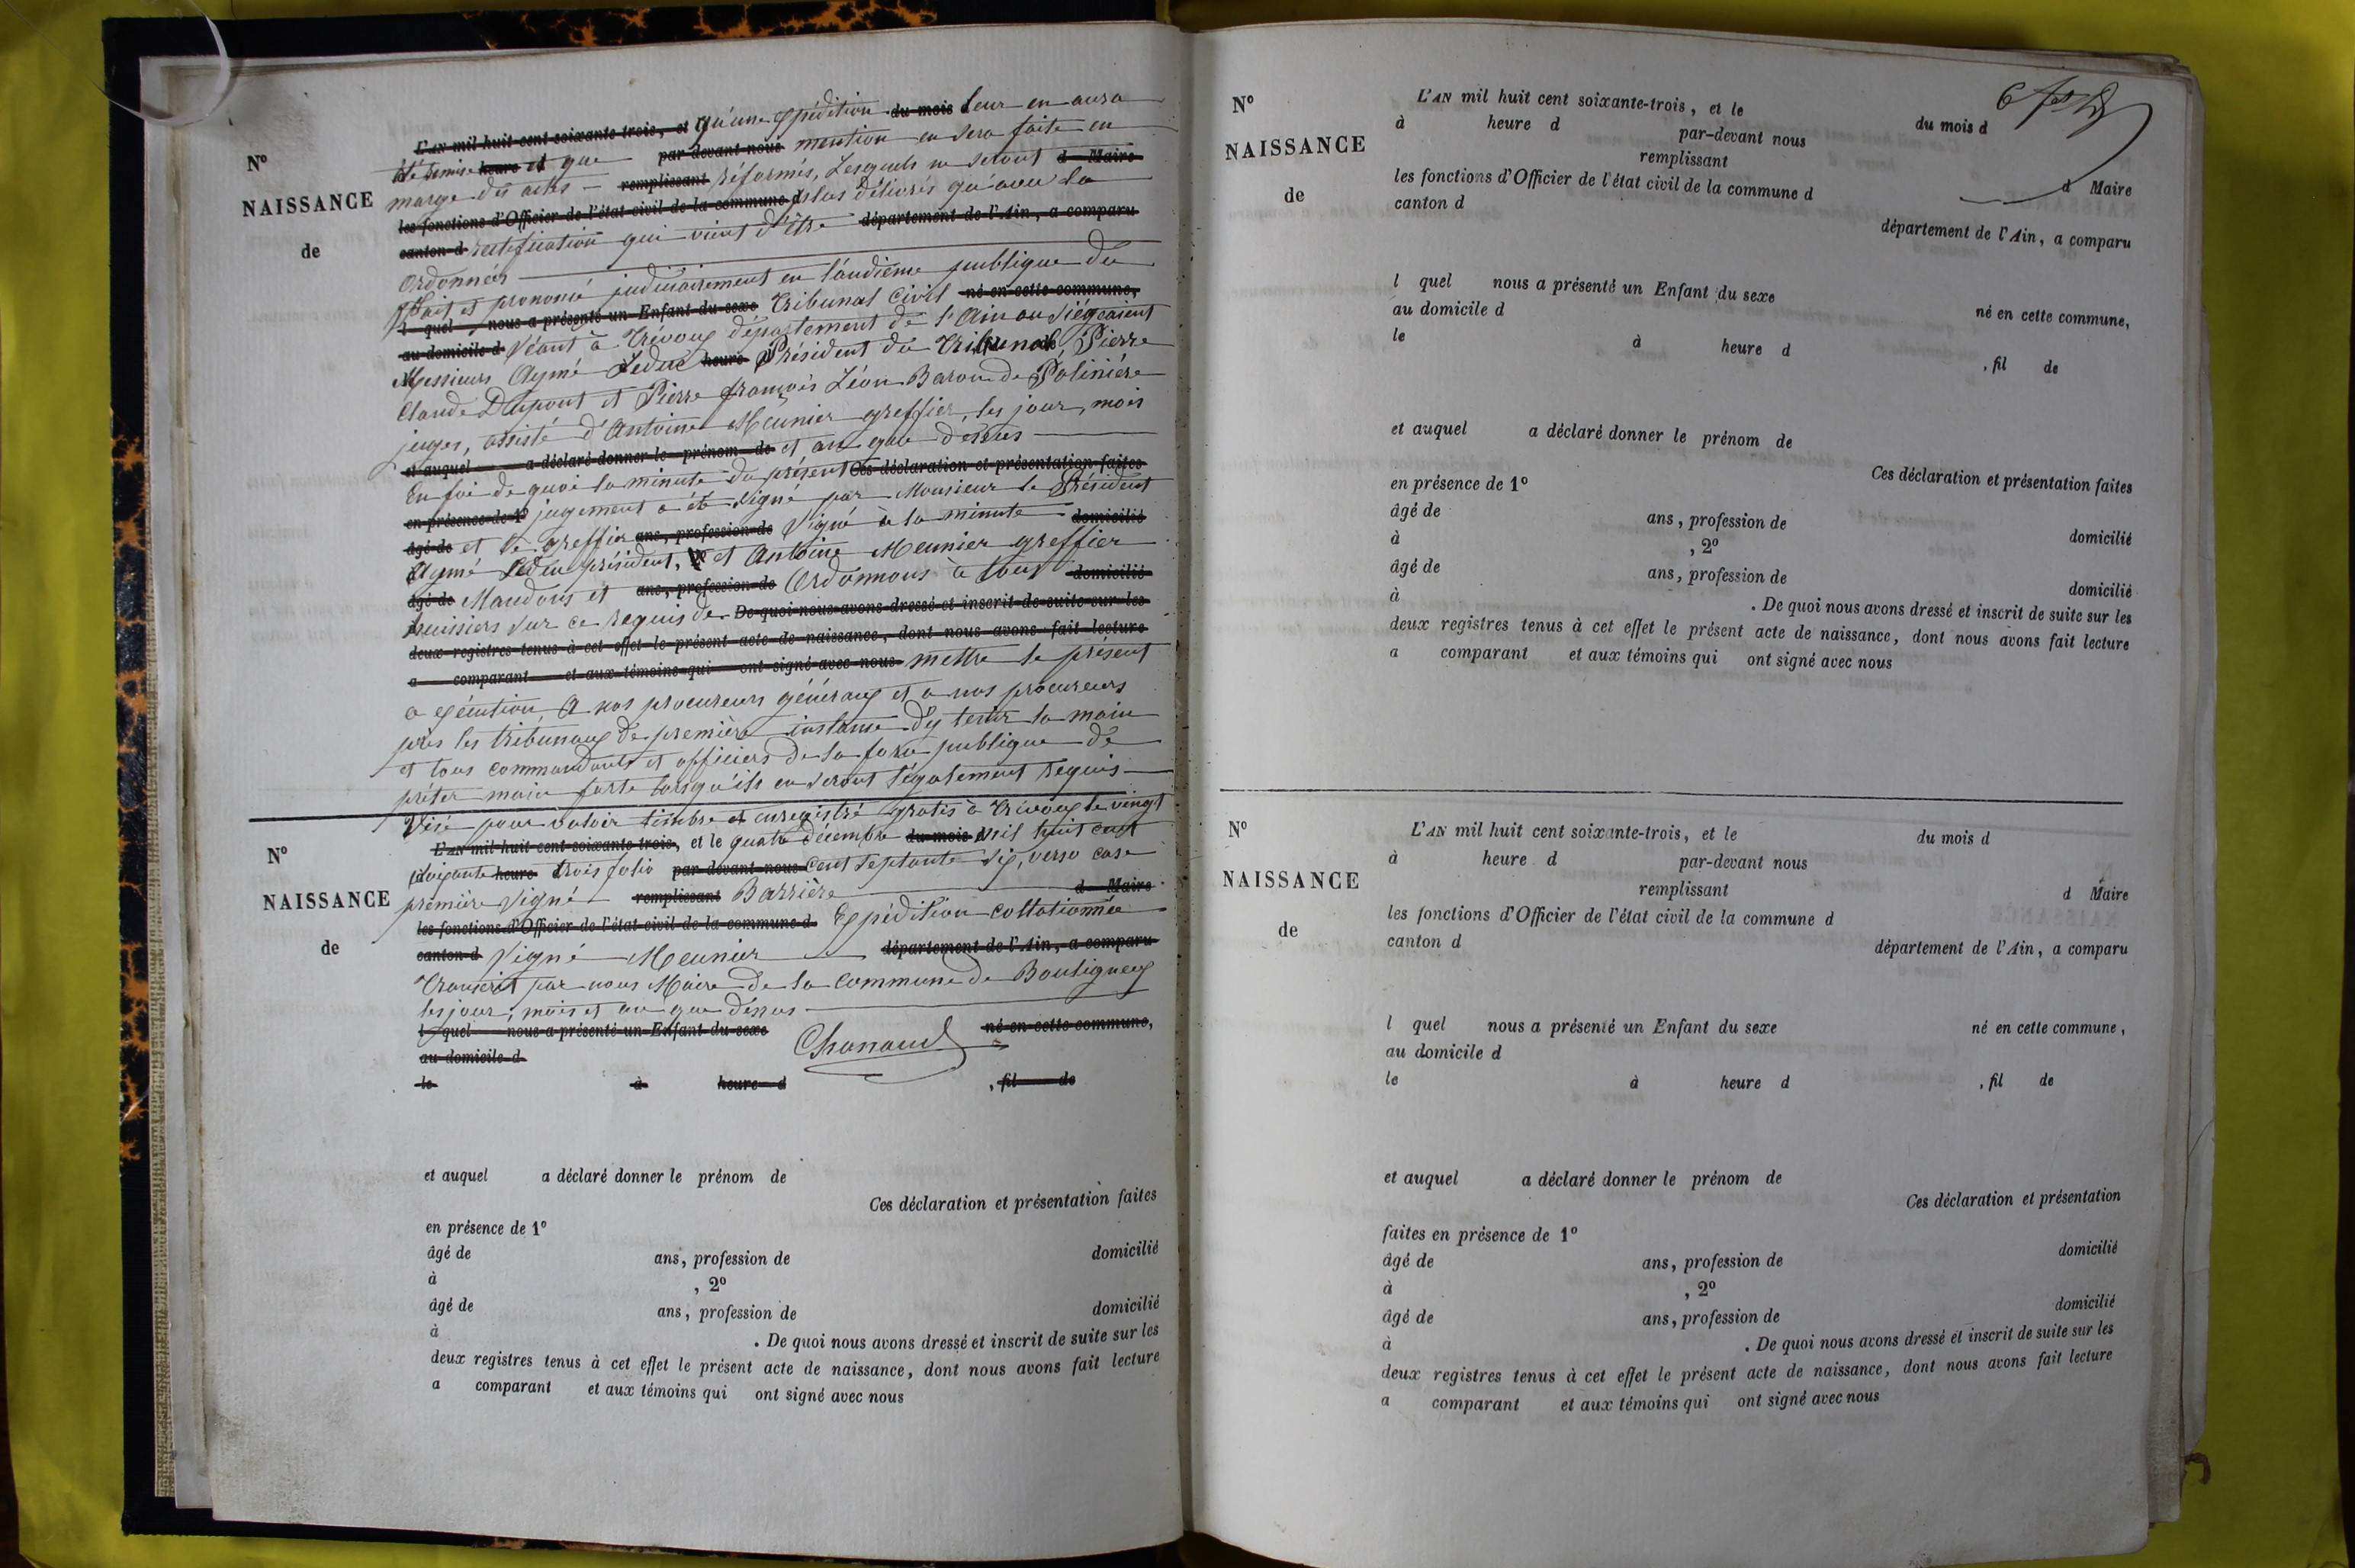 L'AN mil huit cent soixante-trois, et qu'une expédition du mois leur en aura
été remise heure et que par-devant nous mention en sera faite en
marge des actes remplissant réformés, Lesquels ne seront d Maire
les fonctions d'Officier de l'état civil de la commune d plus délivrés qu'avec la
canton d rectification qui vient d'être département de l'Ain, a comparu
Ordonnées
Fait et prononcé judiciairement en l'audience publique du
l quel nous a présenté un Enfant du sexe Tribunal Civil né en cette commune,
au domicile d séant à Trévoux département de l'Ain ou siégeaient
Messieurs Aymé Leduc heure Président du Tribunal Pierre
Claude Dupont et Pierre françois Léon Baron de Polinière
juges, assisté d'Antoine Meunier greffier, les jour, mois
et auquel a déclaré donner le prénom de et an que dessus
En foi de quoi la minute du présent Ces déclaration et présentation faites
en présence de 1º jugement a été signé par Monsieur le Président
âgé de et le greffier ans, profession de Signé à la minute domicilié
Aymé Leduc président, et Antoine Meunier greffier
âgé de Mandons et ans, profession de Ordonnons à tous domicilié
huissiers sur ce requis de De quoi nous avons dressé et inscrit de suite sur les
deux registres tenus à cet effet le présent acte de naissance, dont nous avons fait lecture
a comparant et aux témoins qui ont signé avec nous mettre le présent
a exécution, A nos procureurs généraux et a nos procureurs
près les tribunaux de première instance d'y tenir la main
et tous commandants et officiers de la force publique de
prêter main forte lorsqu'ils en seront légalement requis
Nº
NAISSANCE
de
Visé pour valoir timbre et enregistré gratis à Trévoux le vingt
L'AN mil huit cent soixante-trois, et le quatre décembre du mois d mil huit cent
soixante heure trois folio par-devant nous cent septante six, verso case
première signé remplissant Barrière d Maire
les fonctions d'Officier de l'état civil de la commune d Expédition collationnée
canton d signé Meunier département de l'Ain, a comparu
Transcrit par nous Maire de la Commune de Bouligneux
les jour, mois et an que dessus
l quel nous a présenté un Enfant du sexe Chanaud né en cette commune,
au domicile d
le à heure d , fil de
et auquel a déclaré donner le prénom de
Ces déclaration et présentation faites
en présence de 1º
âgé de ans, profession de domicilié
à , 2º
âgé de ans, profession de domicilié
à . De quoi nous avons dressé et inscrit de suite sur les
deux registres tenus à cet effet le présent acte de naissance, dont nous avons fait lecture
a comparant et aux témoins qui ont signé avec nous
Nº
NAISSANCE
de
6
L'AN mil huit cent soixante-trois, et le du mois d
à heure d par-devant nous
remplissant d Maire
les fonctions d'Officier de l'état civil de la commune d
canton d département de l'Ain, a comparu
l quel nous a présenté un Enfant du sexe né en cette commune,
au domicile d
le à heure d , fil de
et auquel a déclaré donner le prénom de
Ces déclaration et présentation faites
en présence de 1º
âgé de ans, profession de domicilié
à , 2º
âgé de ans, profession de domicilié
à . De quoi nous avons dressé et inscrit de suite sur les
deux registres tenus à cet effet le présent acte de naissance, dont nous avons fait lecture
a comparant et aux témoins qui ont signé avec nous
Nº
NAISSANCE
de
L'AN mil huit cent soixante-trois, et le du mois d
à heure d par-devant nous
remplissant d Maire
les fonctions d'Officier de l'état civil de la commune d
canton d département de l'Ain, a comparu
l quel nous a présenté un Enfant du sexe né en cette commune,
au domicile d
le à heure d , fil de
et auquel a déclaré donner le prénom de
Ces déclaration et présentation
faites en présence de 1º
âgé de ans, profession de domicilié
à , 2º
âgé de ans, profession de domicilié
à . De quoi nous avons dressé et inscrit de suite sur les
deux registres tenus à cet effet le présent acte de naissance, dont nous avons fait lecture
a comparant et aux témoins qui ont signé avec nous
Nº
NAISSANCE
de